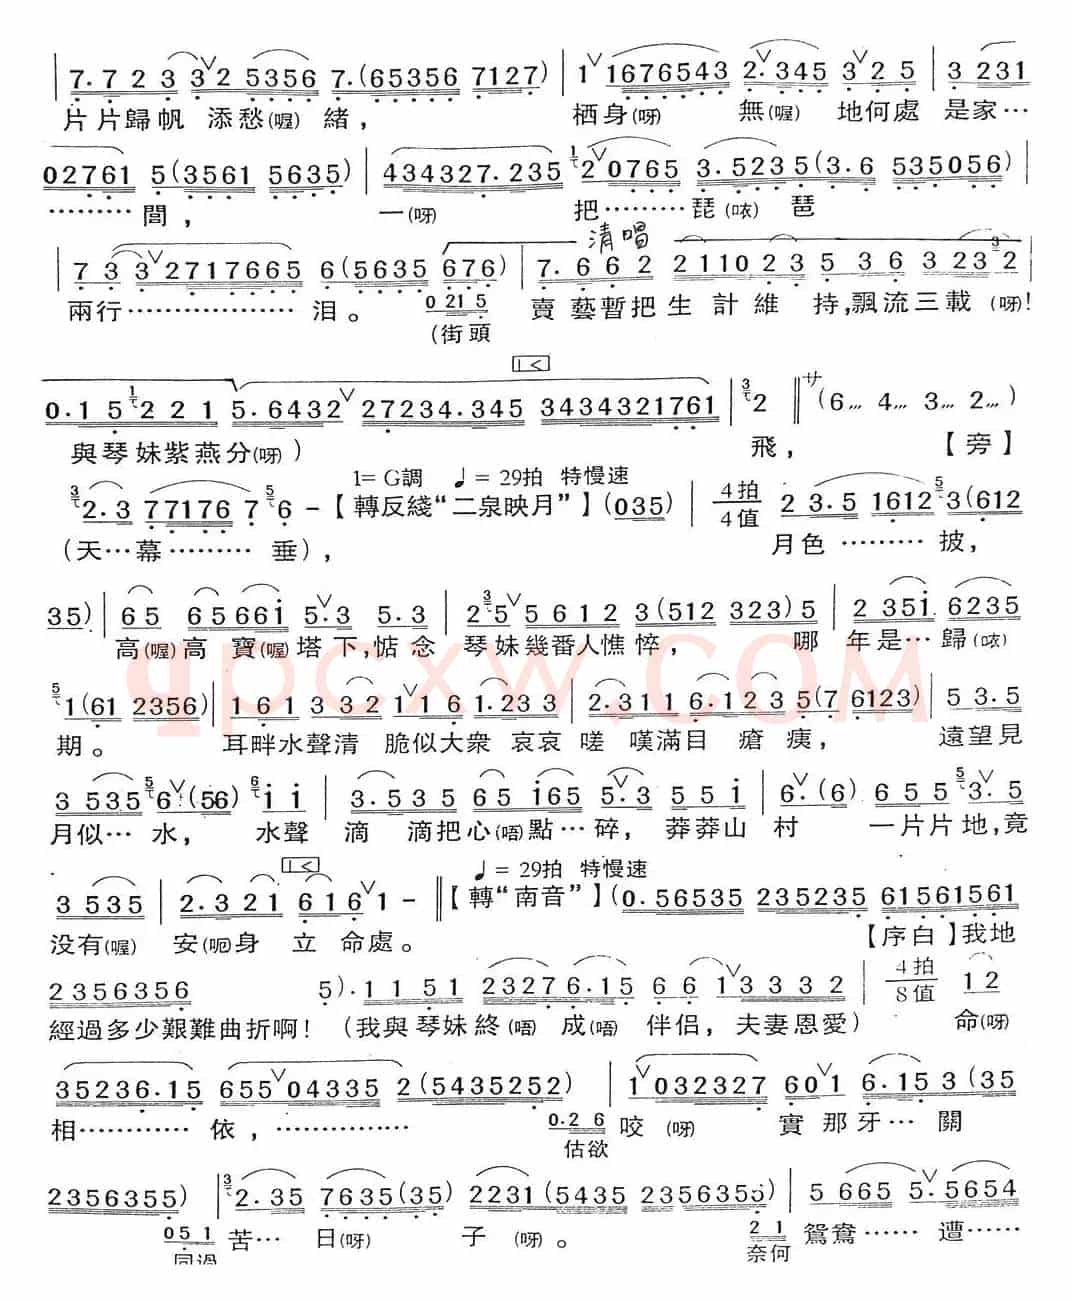 7. 7 2 3 3 2 5356 7. (65356 7127) | 1 1676543 2. 345 3 2 5 | 3 231
片片歸帆 添愁(喔) 緒， 栖身(呀) 無(喔) 地何處 是家…
02761 5 (3561 5635) | 434327. 235 2 0765 3. 5235 (3. 6 535056) |
……… 閭， 一(呀) 把………琵(哝) 琶
清唱
| 7 3 3 2717665 6 (5635 676) | 7. 6 6 2 2110 2 3 5 3 6 3 23 2 |
0 21 5
兩行……………… 泪。 (街頭 賣藝暫把生計維 持，飄流三載(呀)！
0. 1 5 2 2 1 5. 6432 27234. 345 3434321761 | 2 ‖ サ (6… 4… 3… 2…)
與琴妹紫燕分(呀) ) 飛， 【旁】
1=G調 ♩=29拍 特慢速
2. 3 77176 7 6 - 【轉反綫“二泉映月”】(035) | 4拍/4值 2 3. 5 1612 3 (612
(天…幕……… 垂)， 月色 ……… 披，
35) | 65 65661 5. 3 5. 3 | 2 5 5 6 1 2 3 (512 323) 5 | 2 351 6235
高(喔)高 寶(喔)塔下，惦念 琴妹幾番人憔悴， 哪 年是…歸(哝)
1 (61 2356) | 1 6 1 3 3 2 1 1 6 1. 23 3 | 2. 311 6 1 3 2 3 5 (7 6123) | 5 3. 5
期。 耳畔水聲清 脆似大衆 哀哀 嗟 嘆滿目 瘡 痍， 遠望見
3 535 6 (56) 1 1 | 3. 535 65 165 5. 3 5 5 1 | 6. (6) 6 5 5 3. 5
月似… 水， 水聲 滴 滴把心(唔)點…碎，莽莽山 村 一片片地，竟
♩=29拍 特慢速
3 535 | 2. 321 616 1 - ‖【轉“南音”】(0. 56535 235235 61561561
没有(喔) 安(呃)身 立 命處。 【序白】我地
2356356 5). 1 1 51 23276. 15 6 6 1 3 3 3 2 | 4拍/8值 1 2
經過多少艱難曲折啊！ (我與琴妹終(唔) 成(唔) 伴侣，夫妻恩愛) 命(呀)
35236. 15 655 04335 2 (5435252) | 1 032327 60 1 6. 15 3 (35
相………… 依，…………… 0. 2 6 咬 (呀) 實那牙… 關
估欲
2356355) | 2. 35 7635 (35) 2231 (5435 2356355) | 5 665 5. 5654
051 苦… 日(呀) 子 (呀)。 2 1 鴛鴦…… 遭……
同過 奈何
qpcxw.COM